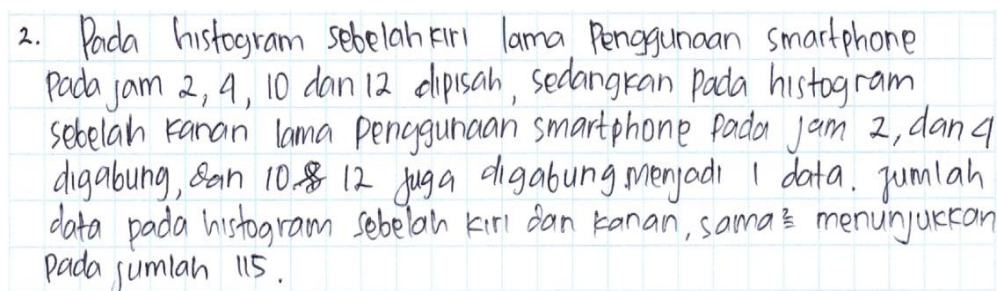 2. Pada histogram sebelah kiri lama Penggunaan smartphone
pada jam 2, 4, 10 dan 12 dipisah, sedangkan pada histogram
sebelah kanan lama penggunaan smartphone pada jam 2, dan 4
digabung, dan 10 & 12 juga digabung menjadi 1 data. Jumlah
data pada histogram sebelah kiri dan kanan, sama² menunjukkan
pada jumlah 115.